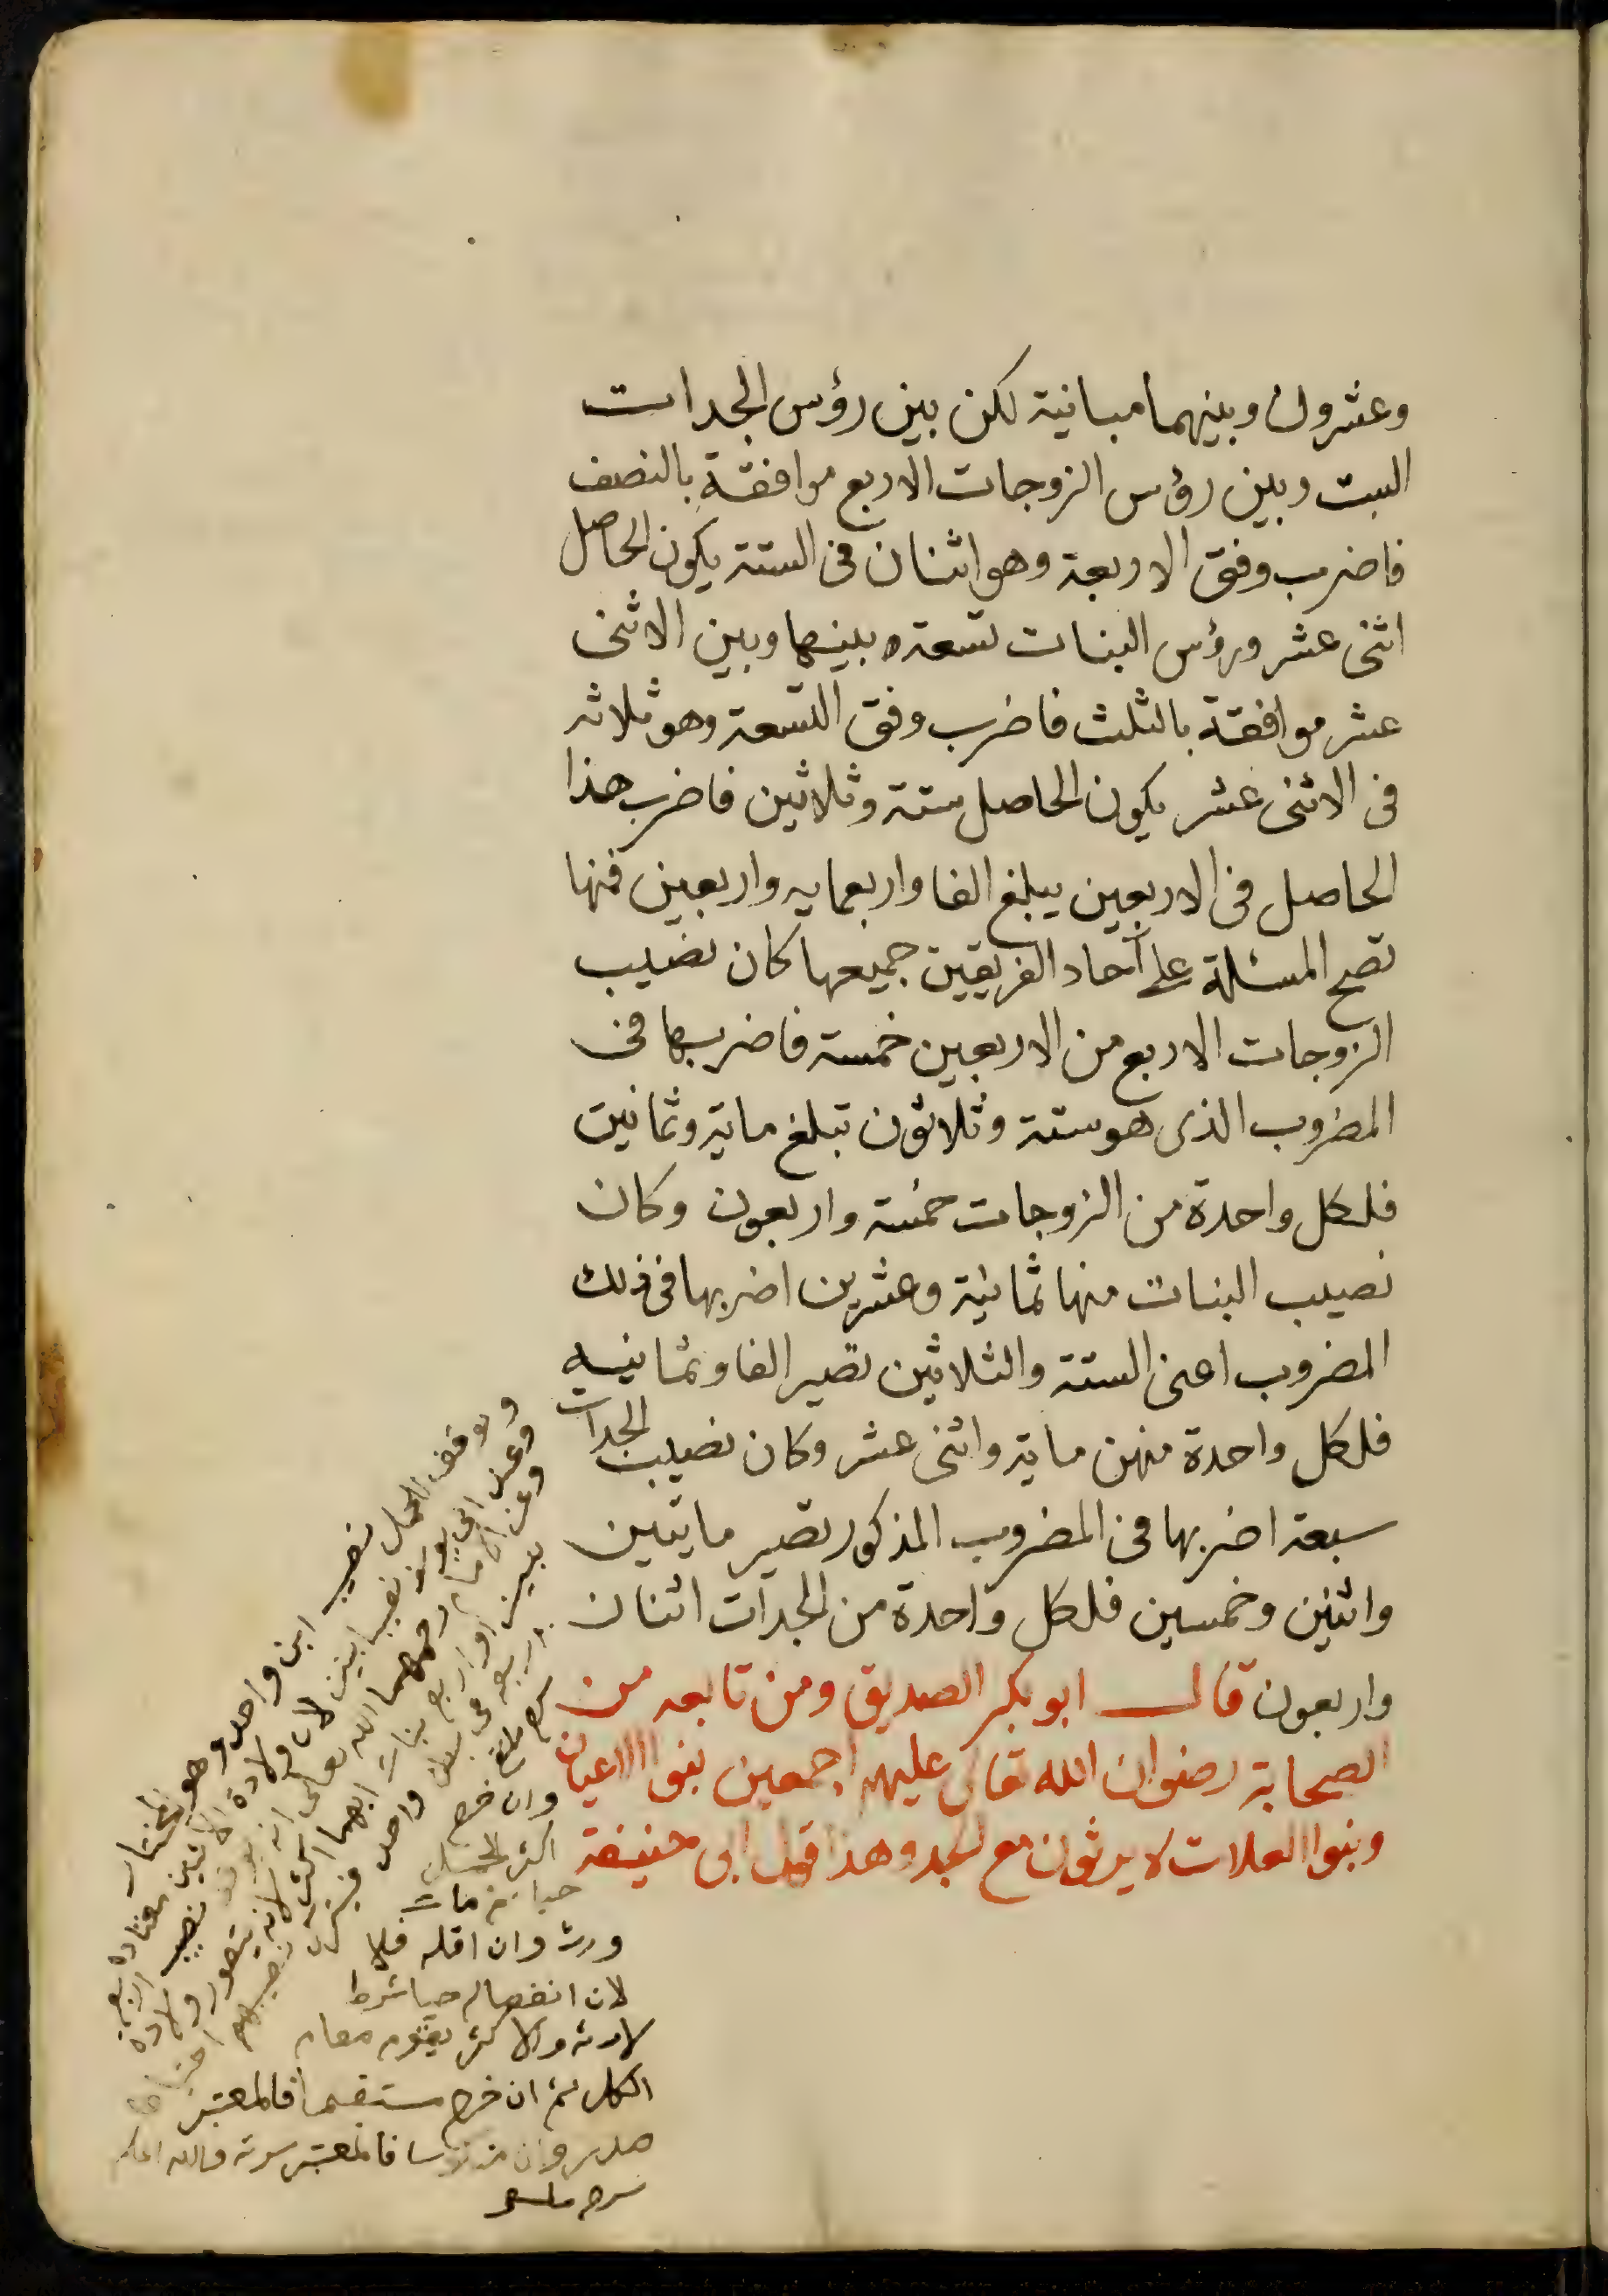 وعشرون وبينهما مباينة لكن بين رؤس الجدات
الست وبين رؤس الزوجات الاربع موافقة بالنصف
فاضرب وفق الاربعة وهو اثنان فى الستة يكون الحاصل
اثنى عشر ورؤس البنات تسعة وبينها وبين الاثنى
عشر موافقة بالثلث فاضرب وفق التسعة وهو ثلاثه
فى الاثنى عشر يكون الحاصل ستة وثلاثين فاضرب هذا
الحاصل فى الاربعين يبلغ الفا واربعمايه واربعين فمنها
تصح المسئلة على آحاد الفريقين جميعها كان نصيب
الزوجات الاربع من الاربعين خمسة فاضربها فى
المضروب الذى هو ستة وثلاثون تبلغ ماية وثمانين
فلكل واحدة من الزوجات خمسة واربعون وكان
نصيب البنات منها ثمانية وعشرين اضربها فى ذلك
المضروب اعنى الستة والثلاثين تصير الفا وثمانيه
فلكل واحدة منهن ماية واثنى عشر وكان نصيب الجدات
سبعة اضربها فى المضروب المذكور تصير مايتين
واثنين وخمسين فلكل واحدة من الجدات اثنان
واربعون قال ابو بكر الصديق ومن تابعه من
الصحابة رضوان الله تعالى عليهم اجمعين بنوا الاعيان
وبنوا العلات لا يرثون مع الجد وهذا قول ابى حنيفة
ويوقف للحمل نصيب ابن واحد وهو المختار
وعند ابى يوسف نصيب ابنين لان ولادة الاثنين معتادة
وعن الامام رحمهما الله تعالى انه يوقف نصيب اربع
بنين او اربع بنات ايهما اكثر لانه يتصور ولادة
اربعة فى بطن واحد فيترك نصيبهم احتياطا
وان خرج
اكثر الحمل
حيا ثم مات
ورث وان اقله فلا
لان انفصاله حيا شرط
لارثه والاكثر يقوم مقام
الكل ثم ان خرج مستقيما فالمعتبر
صدره وان منكوسا فالمعتبر سرته والله اعلم